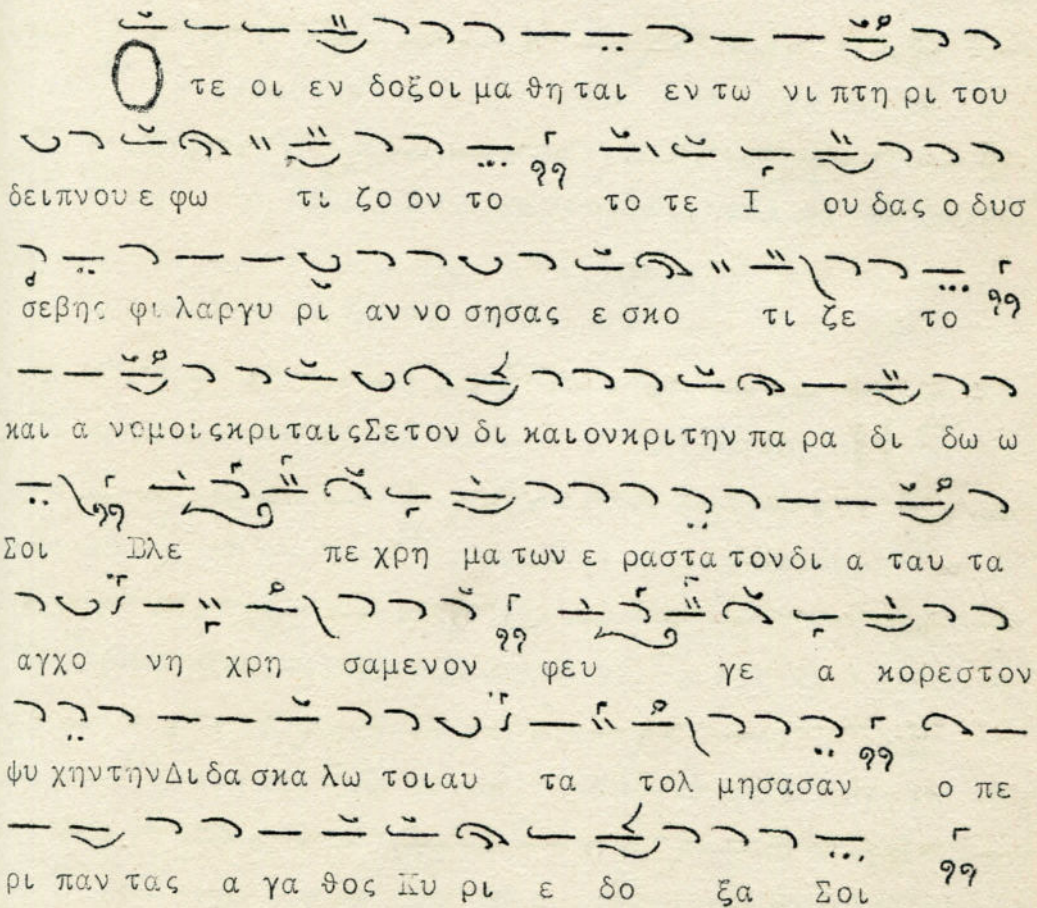 Ο τε οι εν δοξοι μα θη ται εν τω νι πτη ρι του
δειπνου ε φω τι ζο ον το το τε Ι ου δας ο δυσ
σεβης φι λαργυ ρι αν νο σησας ε σκο τι ζε το
και α νομοις κριταις Σε τον δι και ον κριτην πα ρα δι δω ω
Σοι Βλε πε χρη μα των ε ραστα τον δι α ταυ τα
αγχο νη χρη σαμενον φευ γε α κορεστον
ψυ χην την Δι δα σκα λω τοιαυ τα τολ μησασαν ο πε
ρι παν τας α γα θος Κυ ρι ε δο ξα Σοι